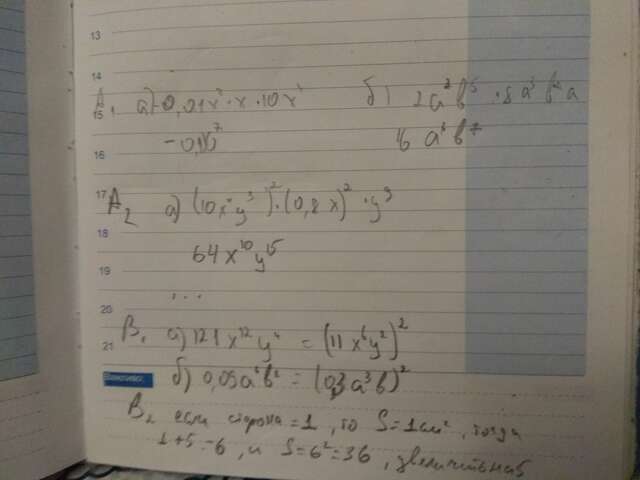 13
14
A1 а) -0,01x² · x · 10x⁴ б) 2a²b⁵ · 8a³b²a
15
-0,1x⁷ 16a⁶b⁷
16
17
A2 а) (10x⁴y³)² · (0,8x)² · y⁹
18
64x¹⁰y¹⁵
19
...
20
B1 а) 121x¹²y⁴ = (11x⁶y²)²
21
б) 0,09a⁶b² = (0,3a³b)²
B2 если сторона = 1, то S = 1 см², тогда
1+5=6, и S=6²=36, увелич